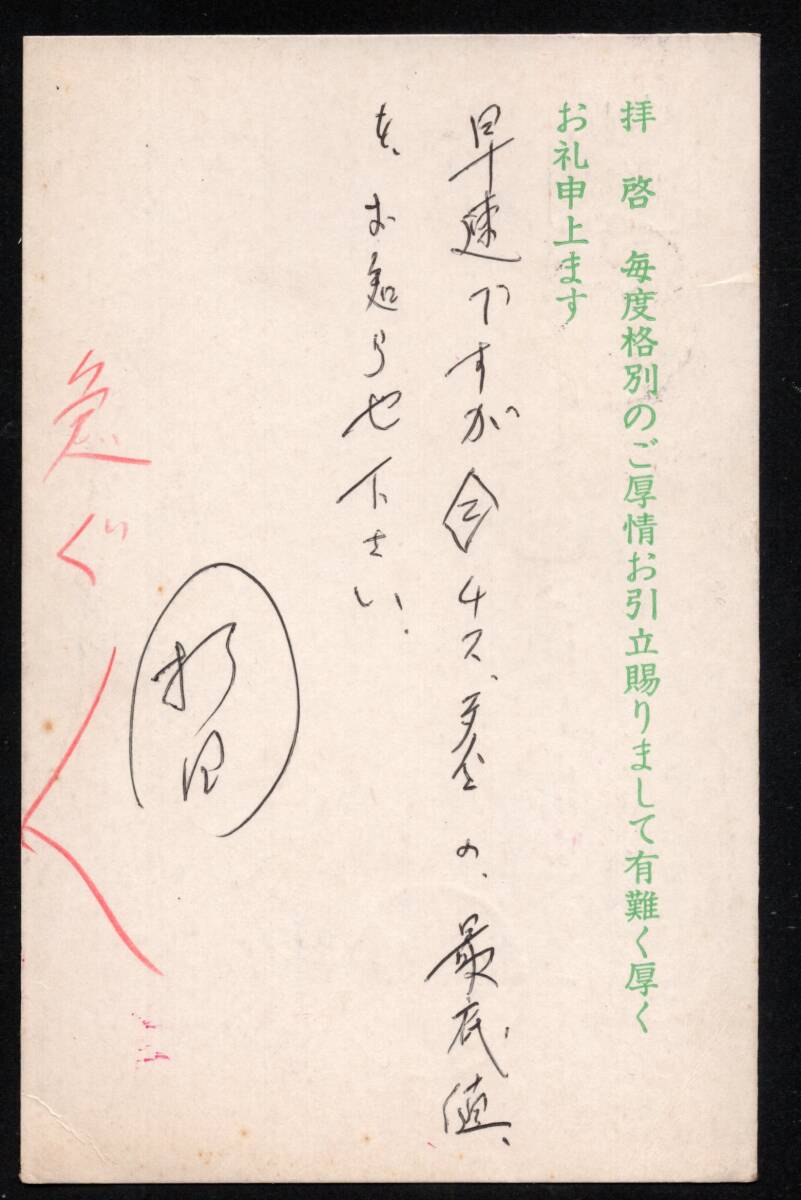 拝啓 毎度格別のご厚情お引立賜りまして有難く厚く
お礼申上ます
早速ですが
の、最底値、
を、お知らせ下さい.
急ぐ